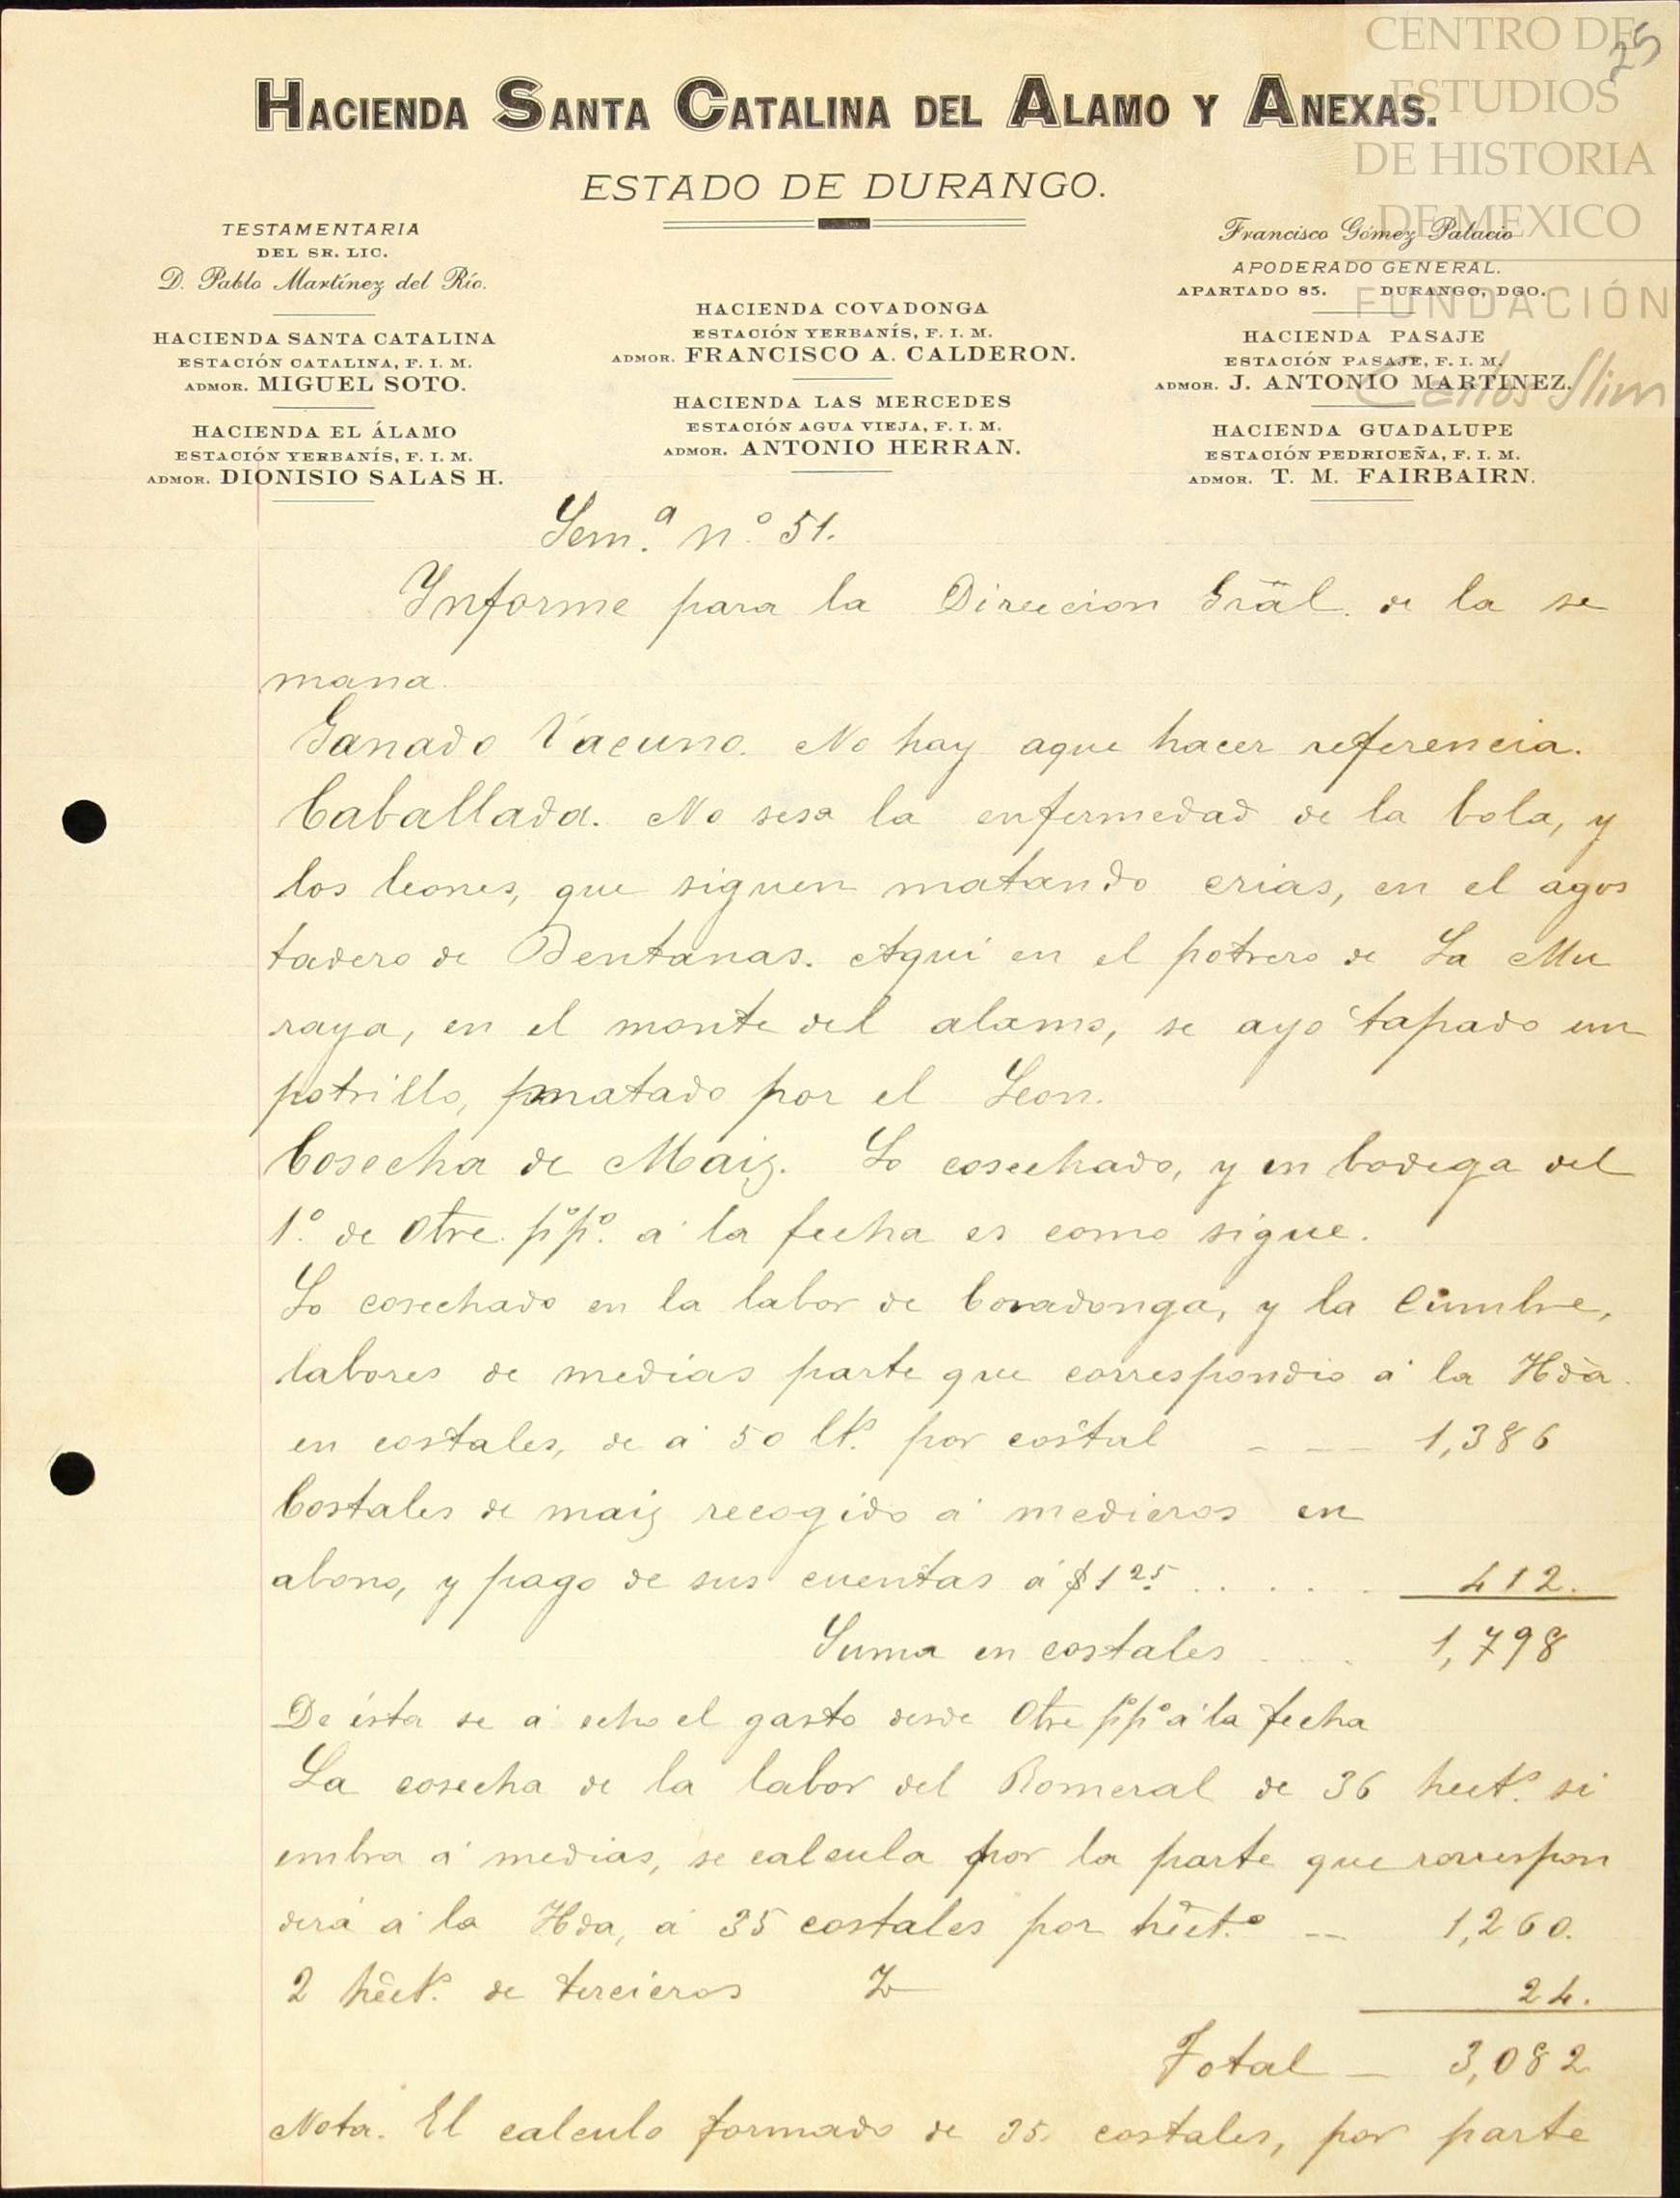 CENTRO DE
ESTUDIOS
DE HISTORIA
DE MEXICO
FUNDACIÓN
Carlos Slim
25
HACIENDA SANTA CATALINA DEL ALAMO Y ANEXAS.
ESTADO DE DURANGO.
TESTAMENTARIA
DEL SR. LIC.
D. Pablo Martínez del Río.
HACIENDA SANTA CATALINA
ESTACIÓN CATALINA, F. I. M.
ADMOR. MIGUEL SOTO.
HACIENDA EL ÁLAMO
ESTACIÓN YERBANÍS, F. I. M.
ADMOR. DIONISIO SALAS H.
HACIENDA COVADONGA
ESTACIÓN YERBANÍS, F. I. M.
ADMOR. FRANCISCO A. CALDERON.
HACIENDA LAS MERCEDES
ESTACIÓN AGUA VIEJA, F. I. M.
ADMOR. ANTONIO HERRAN.
Francisco Gómez Palacio
APODERADO GENERAL.
APARTADO 85. DURANGO, DGO.
HACIENDA PASAJE
ESTACIÓN PASAJE, F. I. M.
ADMOR. J. ANTONIO MARTINEZ.
HACIENDA GUADALUPE
ESTACIÓN PEDRICEÑA, F. I. M.
ADMOR. T. M. FAIRBAIRN.
Sem.ª n.º 51.
Informe para la Direccion Gral. de la se
mana.
Ganado Vacuno. No hay aque hacer referencia.
Caballada. No sesa la enfermedad de la bola, y
los leones, que siguen matando crias, en el agos
tadero de Bentanas. Aqui en el potrero de La Mu
raya, en el monte del alamo, se ayo tapado un
potrillo, matado por el Leon.
Cosecha de Maiz. Lo cosechado, y en bodega del
1.º de Otre. pºpº. á la fecha es como sigue.
Lo cosechado en la labor de Covadonga, y la Cumbre,
labores de medias parte que correspondio á la Hda.
en costales, de á 50 lts. por costal - - - 1,386
Costales de maiz recogido á medieros en
abono, y pago de sus cuentas á $1 25 . . . . . 412.
Suma en costales . . . 1,798
De ésta se á echo el gasto desde Otre pºpº á la fecha
La cosecha de la labor del Romeral de 36 hects. si
embra á medias, se calcula por la parte que correspon
derá á la Hda, á 35 costales por hect.º -- 1,260.
2 hects. de tercieros 24.
Total - 3,082
Nota. El calculo formado de 35. costales, por parte